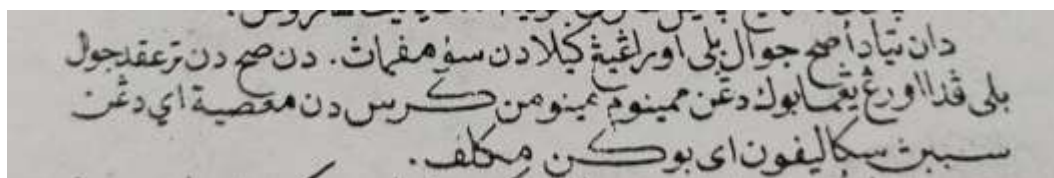 دان تياد أصح جوال بلي اورڠ يڠ ݢيلا دن سؤمفمات. دن صح دن ترعقد جول
بلي ڤدا اورڠ يڠ مابوك دڠن ممينوم مينومن كرس دن معصية اي دڠن
سببث سكاليفون اي بوكن مكلف.